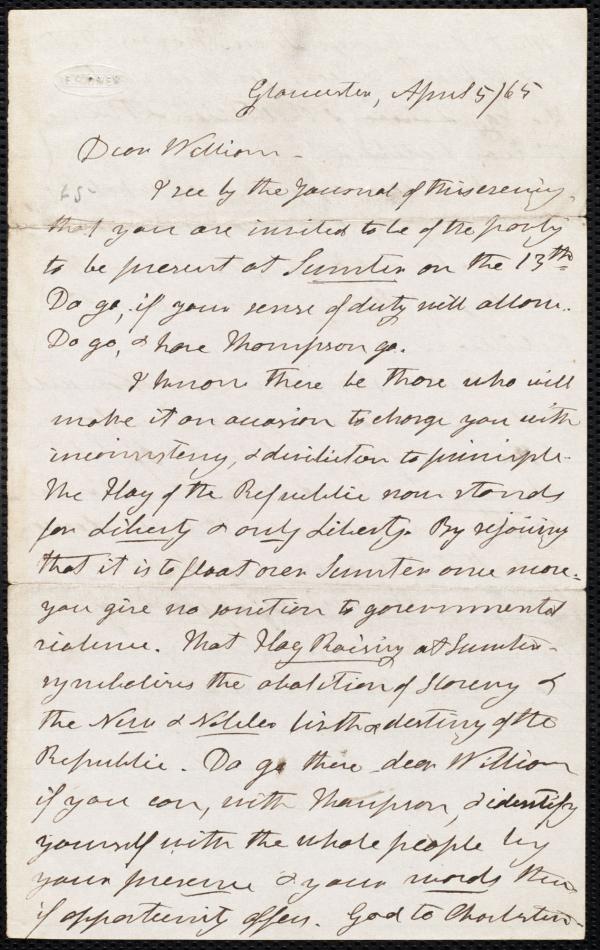 Gloucester, April 5/65
Dear William -
I see by the Journal of this evening,
that you are invited to be of the party
to be present at Sumter on the 13th.
Do go, if your sense of duty will allow.
Do go, & have Thompson go.
I know there be those who will
make it an occasion to charge you with
inconsistency, & dereliction to principle.
The Flag of the Republic now stands
for Liberty & only Liberty. By rejoicing
that it is to float over Sumter once more,
you give no sanction to governmental
violence. That Flag Raising at Sumter
symbolizes the abolition of Slavery &
the New & Nobler birth & destiny of the
Republic. Do go there dear William
if you can, with Thompson, & identify
yourself with the whole people by
your presence & your words there
if opportunity offers. God to Charleston